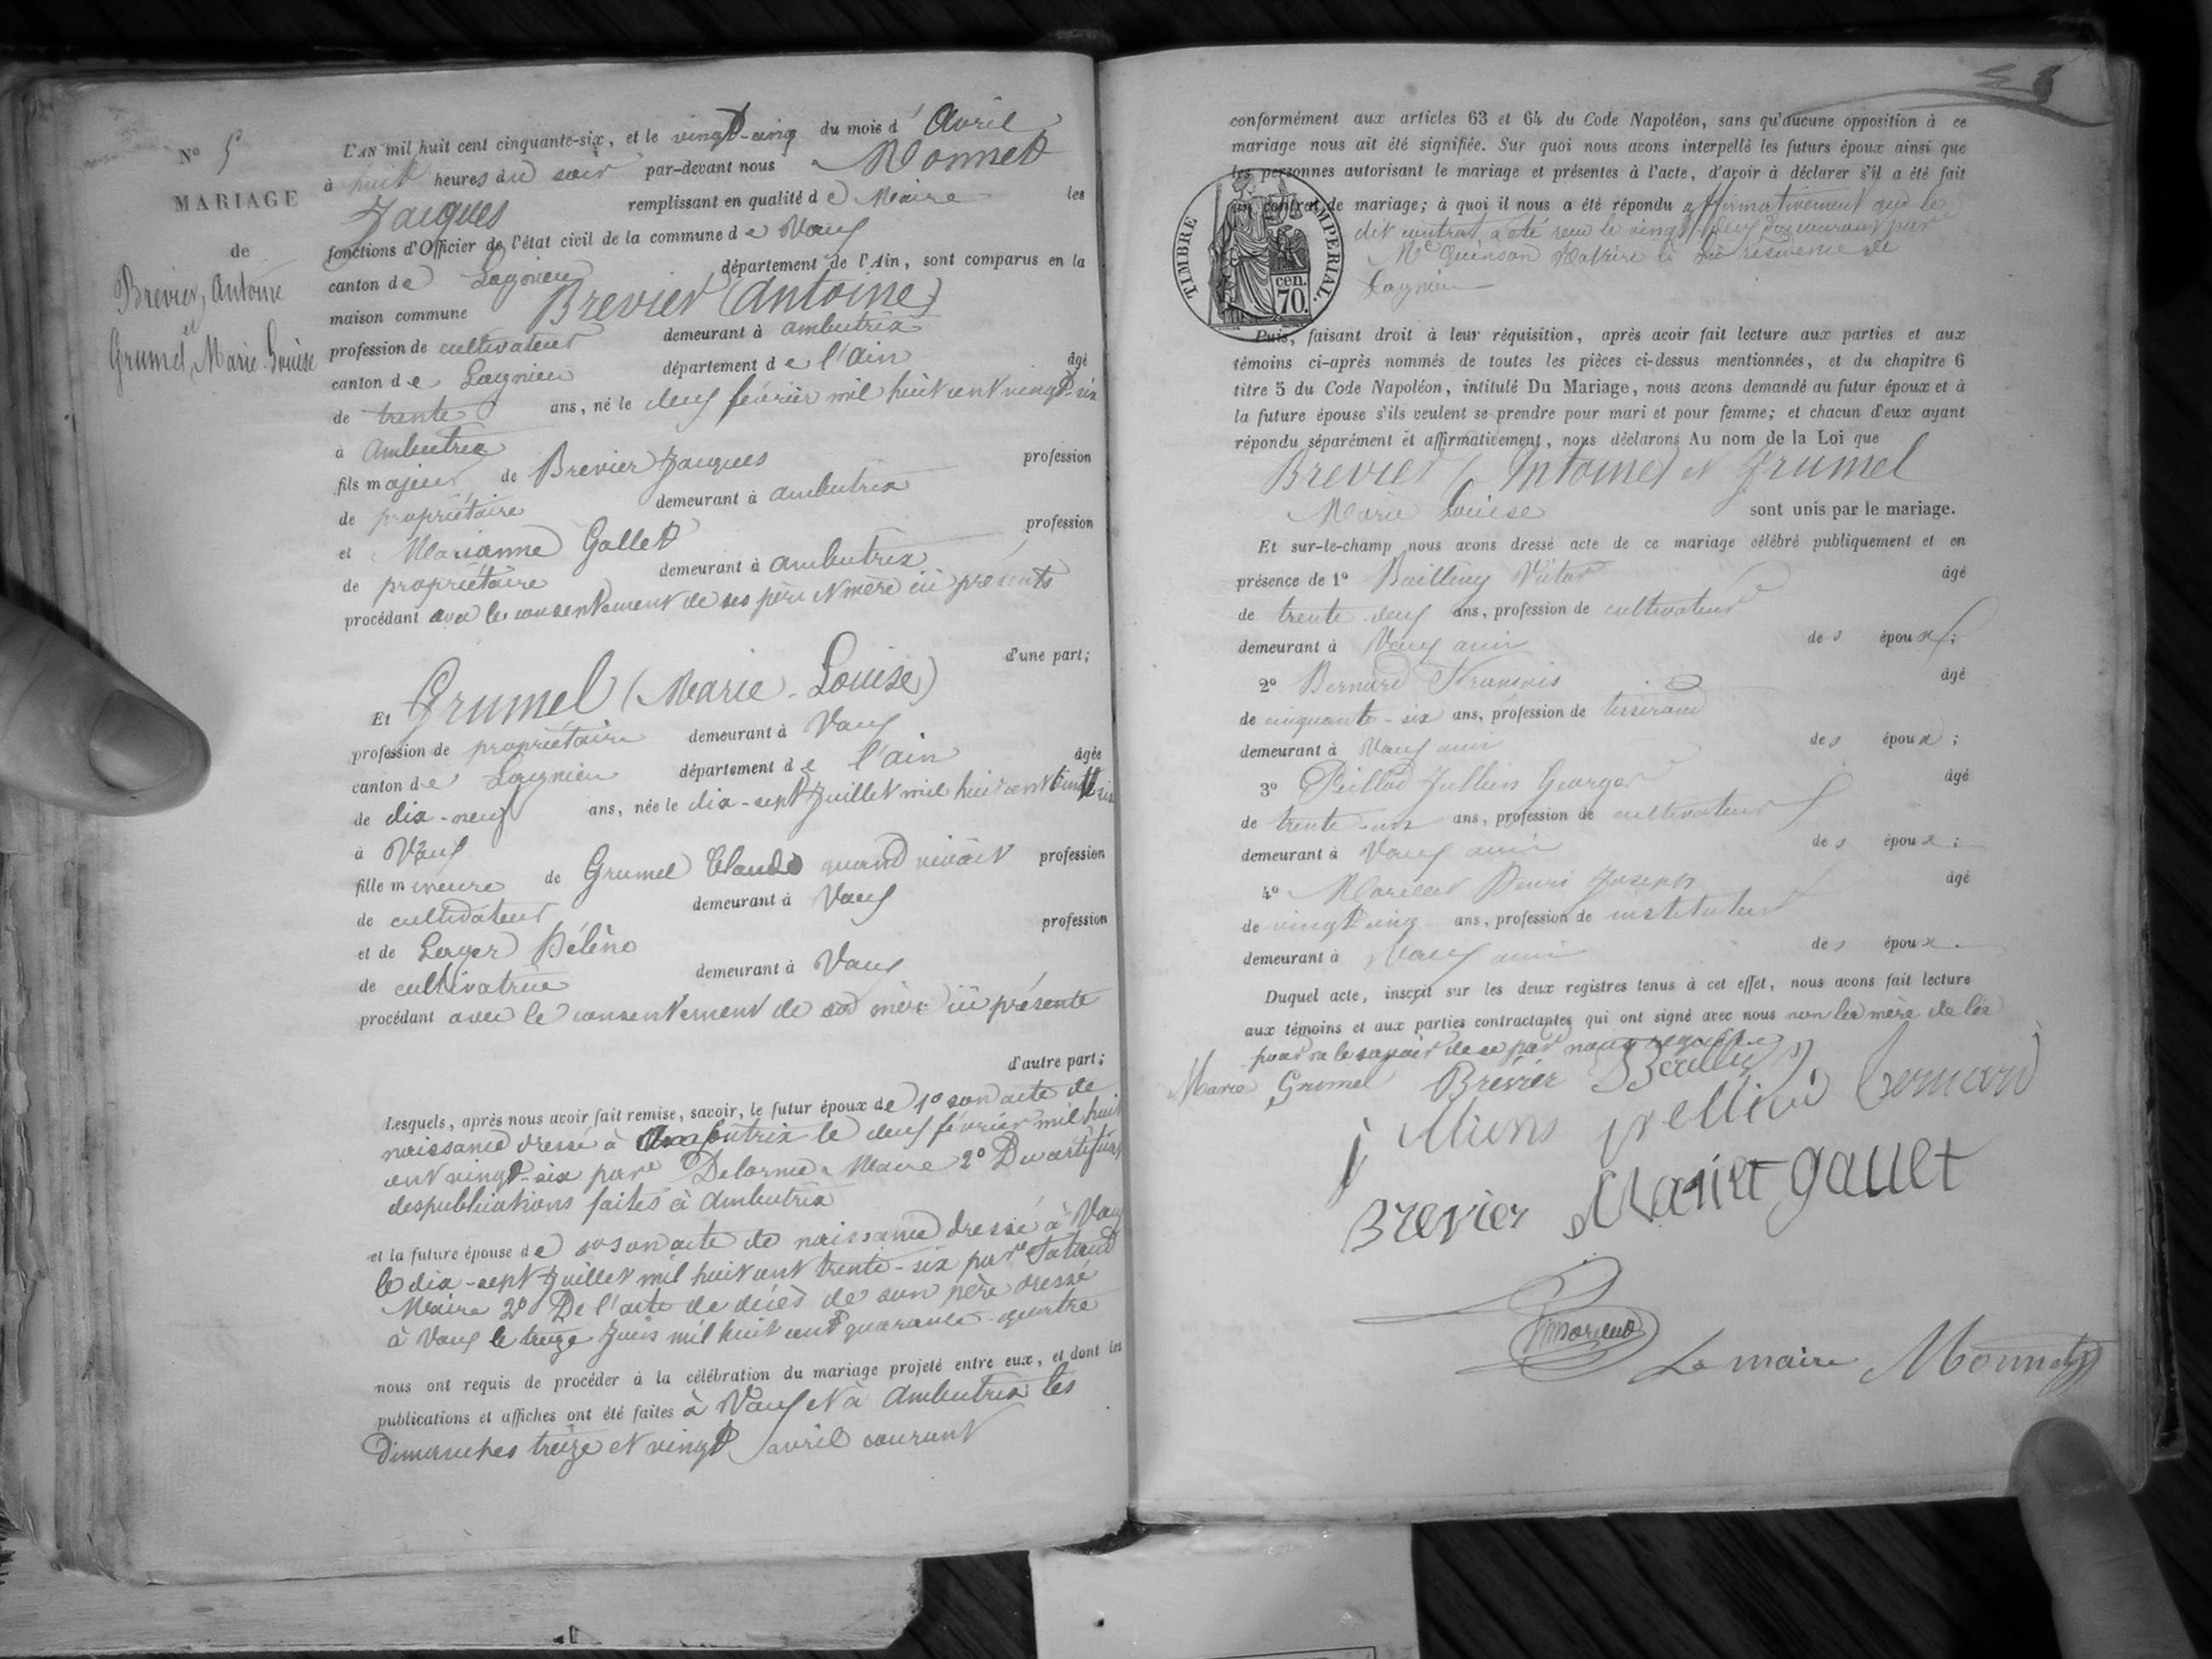 N° 5
MARIAGE
de
Brevier, Antoine
et
Grumel, Marie-Louise
L'AN mil huit cent cinquante-six, et le vingt-cinq du mois d' Avril
à huit heures du soir par-devant nous Monnet
Jacques remplissant en qualité de Maire les
fonctions d'Officier de l'état civil de la commune de Vaux
canton de Lagnieu département de l'Ain, sont comparus en la
maison commune Brevier (Antoine)
profession de cultivateur demeurant à ambutrix
canton de Lagnieu département de l'ain âgé
de trente ans, né le deux février mil huit cent vingt-six
à Ambutrix
fils majeur de Brevier Jacques profession
de propriétaire demeurant à ambutrix
et Marianne Gallet profession
de propriétaire demeurant à ambutrix
procédant avec le consentement de ses père et mère ici présents
d'une part;
Et Grumel (Marie-Louise)
profession de propriétaire demeurant à Vaux
canton de Lagnieu département de l'ain âgée
de dix-neuf ans, née le dix-sept Juillet mil huit cent
à Vaux
fille mineure de Grumel Claude quand vivait profession
de cultivateur demeurant à Vaux
et de Leger Hélène profession
de cultivatrice demeurant à Vaux
procédant avec le consentement de sa mère ici présente
d'autre part;
Lesquels, après nous avoir fait remise, savoir, le futur époux de 1° son acte de
naissance dressé à Ambutrix le deux février mil huit
cent vingt-six par Delorme Maire 2° Du certificat
des publications faites à Ambutrix
et la future épouse de son acte de naissance dressé à Vaux
le dix-sept Juillet mil huit cent trente-six par
Maire 2° De l'acte de décès de son père dressé
à Vaux le treize Juin mil huit cent quarante-quatre
nous ont requis de procéder à la célébration du mariage projeté entre eux, et dont les
publications et affiches ont été faites à Vaux et à Ambutrix les
Dimanches treize et vingt avril courant
conformément aux articles 63 et 64 du Code Napoléon, sans qu'aucune opposition à ce
mariage nous ait été signifiée. Sur quoi nous avons interpellé les futurs époux ainsi que
les personnes autorisant le mariage et présentes à l'acte, d'avoir à déclarer s'il a été fait
un contrat de mariage; à quoi il nous a été répondu affirmativement que le
dit contrat a été reçu le vingt deux du courant par
Me Quinson Notaire à la résidence de
Lagnieu
TIMBRE IMPERIAL.
70. cen.
Puis, faisant droit à leur réquisition, après avoir fait lecture aux parties et aux
témoins ci-après nommés de toutes les pièces ci-dessus mentionnées, et du chapitre 6
titre 5 du Code Napoléon, intitulé Du Mariage, nous avons demandé au futur époux et à
la future épouse s'ils veulent se prendre pour mari et pour femme; et chacun d'eux ayant
répondu séparément et affirmativement, nous déclarons Au nom de la Loi que
Brevier (Antoine) et Grumel
Marie Louise sont unis par le mariage.
Et sur-le-champ nous avons dressé acte de ce mariage célébré publiquement et en
présence de 1° Victor âgé
de trente-deux ans, profession de cultivateur
demeurant à Vaux ami des époux;
2° Bernard François âgé
de cinquante-six ans, profession de tisserand
demeurant à Vaux ami des époux;
3° Peillod Jullien Georges âgé
de trente ans, profession de cultivateur
demeurant à Vaux ami des époux;
4° Henri Joseph âgé
de vingt cinq ans, profession de instituteur
demeurant à Vaux ami des époux.
Duquel acte, inscrit sur les deux registres tenus à cet effet, nous avons fait lecture
aux témoins et aux parties contractantes qui ont signé avec nous non la mère de la
pour ne le savoir de ce par nous
Marie Grumel Brevier
bernard
Brevier gallet
Le maire Monnet